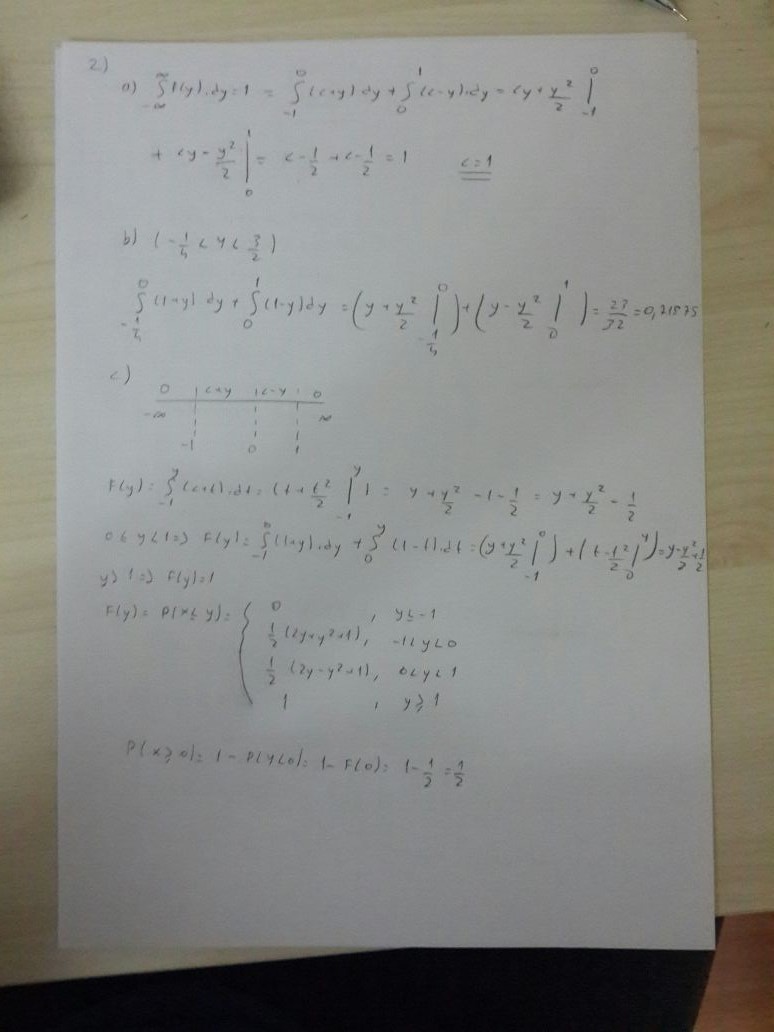 2)
a) ∫_{-∞}^{∞} f(y).dy=1 = ∫_{-1}^{0} (c+y) dy + ∫_{0}^{1} (c-y).dy = cy + y²/2 |_{-1}^{0}
+ cy - y²/2 |_{0}^{1} = c - 1/2 + c - 1/2 = 1 c=1
b) (-1/4 < y < 3/2)
∫_{-1/4}^{0} (1+y) dy + ∫_{0}^{1} (1-y) dy = (y + y²/2 |_{-1/4}^{0}) + (y - y²/2 |_{0}^{1}) = 23/32 = 0,71875
c)
0 | c+y | c-y | 0
-∞ ∞
-1 0 1
F(y) = ∫_{-1}^{y} (c+t).dt = (t + t²/2 |_{-1}^{y}) = y + y²/2 - 1 - 1/2 = y + y²/2 - 1/2
0 ≤ y < 1 => F(y) = ∫_{-1}^{0} (1+y).dy + ∫_{0}^{y} (1-t).dt = (y + y²/2 |_{-1}^{0}) + (t - t²/2 |_{0}^{y}) = y - y²/2 + 1/2
y > 1 => F(y) = 1
F(y) = P(x ≤ y) = { 0 , y ≤ -1
1/2 (2y+y²+1), -1 < y < 0
1/2 (2y-y²+1), 0 < y < 1
1 , y ≥ 1
P(x ≥ 0) = 1 - P(y < 0) = 1 - F(0) = 1 - 1/2 = 1/2